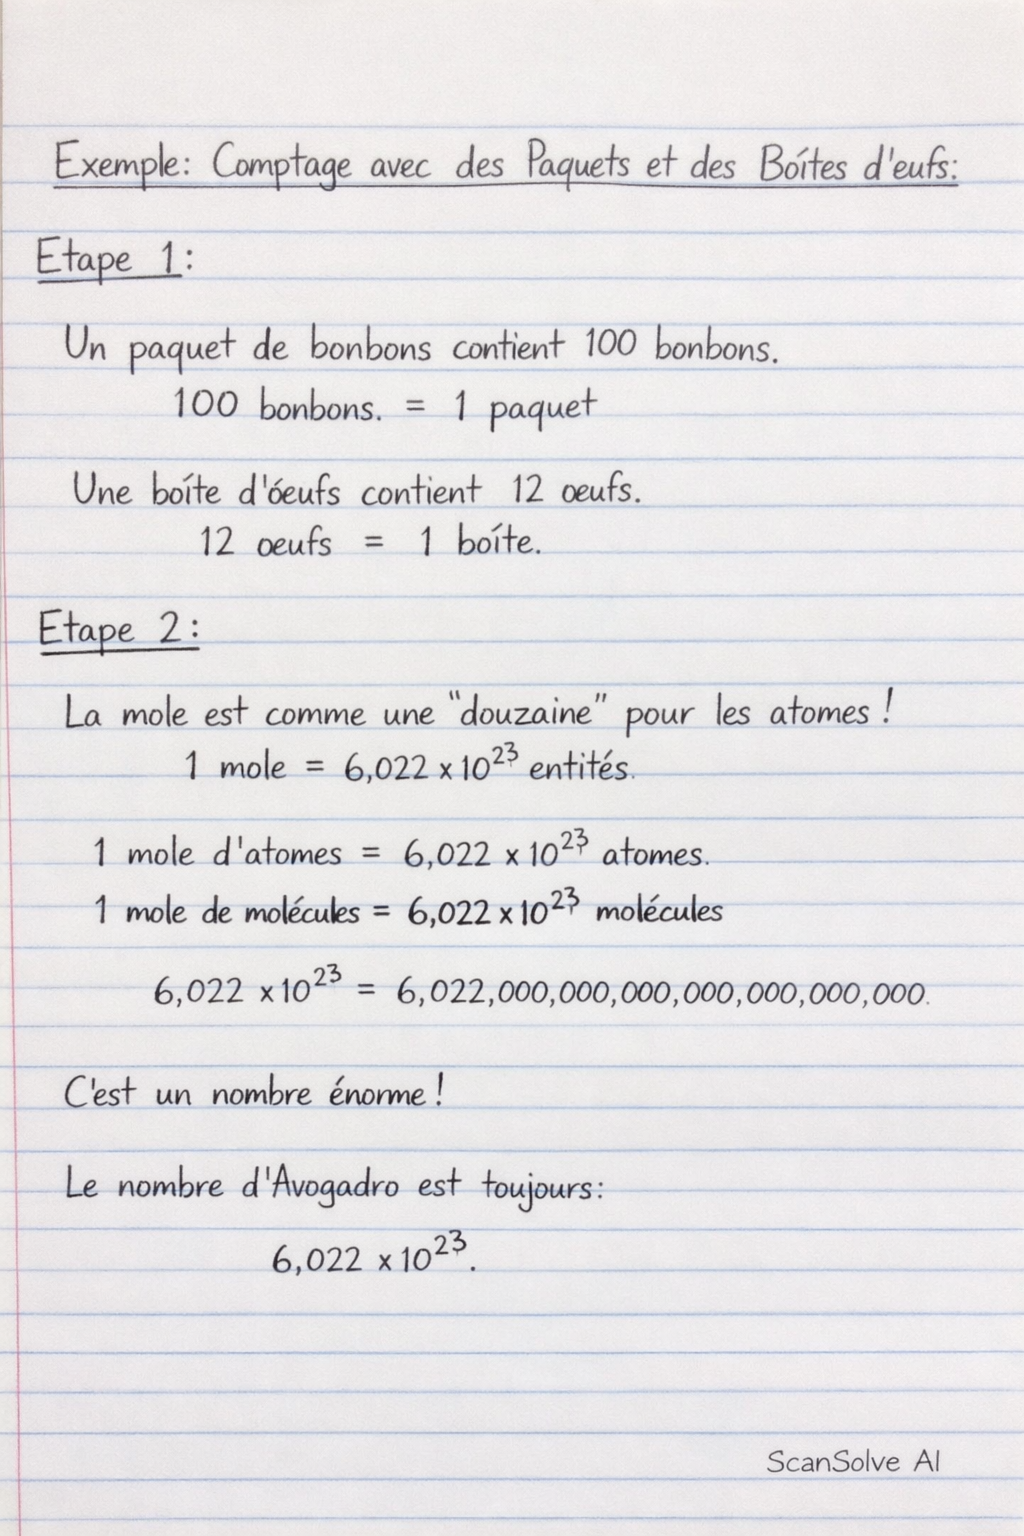 Exemple: Comptage avec des Paquets et des Boítes d'eufs:
Etape 1:
Un paquet de bonbons contient 100 bonbons.
100 bonbons. = 1 paquet
Une boíte d'óeufs contient 12 oeufs.
12 oeufs = 1 boíte.
Etape 2:
La mole est comme une "douzaine" pour les atomes !
1 mole = 6,022 x 10²³ entités.
1 mole d'atomes = 6,022 x 10²³ atomes.
1 mole de molécules = 6,022 x 10²³ molécules
6,022 x 10²³ = 6,022,000,000,000,000,000,000,000.
C'est un nombre énorme !
Le nombre d'Avogadro est toujours:
6,022 x 10²³.
ScanSolve AI